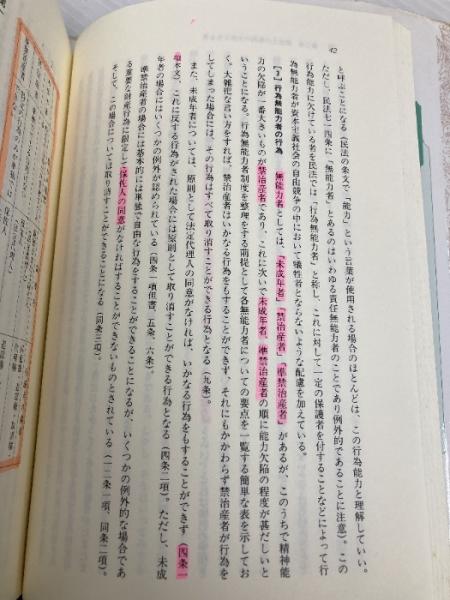 42
と呼ぶことになる（民法の条文で「能力」という言葉が使用される場合のほとんどは、この行為能力と理解していい。
ただし、民法七一四条に「無能力者」とあるのはいわゆる責任無能力者のことであり例外的であることに注意）。この
行為能力に欠けている者を民法では「行為無能力者」と称し、これに対して一定の保護者を付することなどによって行
為無能力者が資本主義社会の自由競争の中において犠牲者とならないような配慮を加えている。
［3］行為無能力者の行為　無能力者としては、「未成年者」「禁治産者」「準禁治産者」があるが、このうちで精神能
力の欠陥が一番大きいものが禁治産者であり、これに次いで未成年者、準禁治産者の順に能力欠陥の程度が甚だしいと
いうことになる。行為無能力者制度を整理をする前提として各無能力者についての要点を一覧する簡単な表を示してお
く。大雑把な言い方をすれば、禁治産者はいかなる行為をもすることができず、それにもかかわらず禁治産者が行為を
してしまった場合には、その行為はすべて取り消すことができる行為となる（九条）。
また、未成年者については、原則として法定代理人の同意がなければ、いかなる行為をもすることができず（四条一
項本文）、これに反する行為がされた場合には原則として取り消すことができる行為となる（四条二項）。ただし、未成
年者の場合にはいくつかの例外が認められている（四条一項但書、五条、六条）。
準禁治産者の場合には基本的には単独で自由な行為をすることができることになるが、いくつかの例外的な場合であ
る重要な財産行為に限定して保佐人の同意がなければすることができないものとされている（一二条一項、同条二項）。
そして、この場合については取り消すことができることになる（同条三項）。